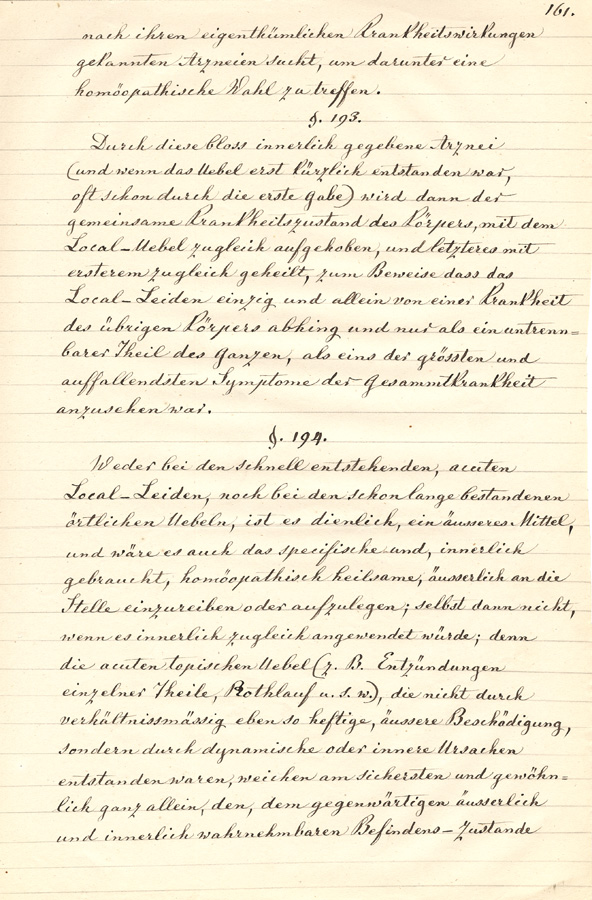 161.
nach ihren eigenthümlichen Krankheitswirkungen
gekannten Arzneien sucht, um darunter eine
homöopathische Wahl zu treffen.
§. 193.
Durch diese bloss innerlich gegebene Arznei
(und wenn das Uebel erst kürzlich entstanden war,
oft schon durch die erste Gabe) wird dann der
gemeinsame Krankheitszustand des Körpers, mit dem
Local-Uebel zugleich aufgehoben, und letzteres mit
ersterem zugleich geheilt, zum Beweise dass das
Local-Leiden einzig und allein von einer Krankheit
des übrigen Körpers abhing und nur als ein untrenn=
barer Theil des Ganzen, als eins der grössten und
auffallendsten Symptome der Gesammtkrankheit
anzusehen war.
§. 194.
Weder bei den schnell entstehenden, acuten
Local-Leiden, noch bei den schon lange bestandenen
örtlichen Uebeln, ist es dienlich, ein äusseres Mittel,
und wäre es auch das specifische und, innerlich
gebraucht, homöopathisch heilsame, äusserlich an die
Stelle einzureiben oder aufzulegen; selbst dann nicht,
wenn es innerlich zugleich angewendet würde; denn
die acuten topischen Uebel (z. B. Entzündungen
einzelner Theile, Rothlauf u. s. w.), die nicht durch
verhältnissmässig eben so heftige, äussere Beschädigung,
sondern durch dynamische oder innere Ursachen
entstanden waren, weichen am sichersten und gewöhn=
lich ganz allein, den, dem gegenwärtigen äusserlich
und innerlich wahrnehmbaren Befindens-Zustande